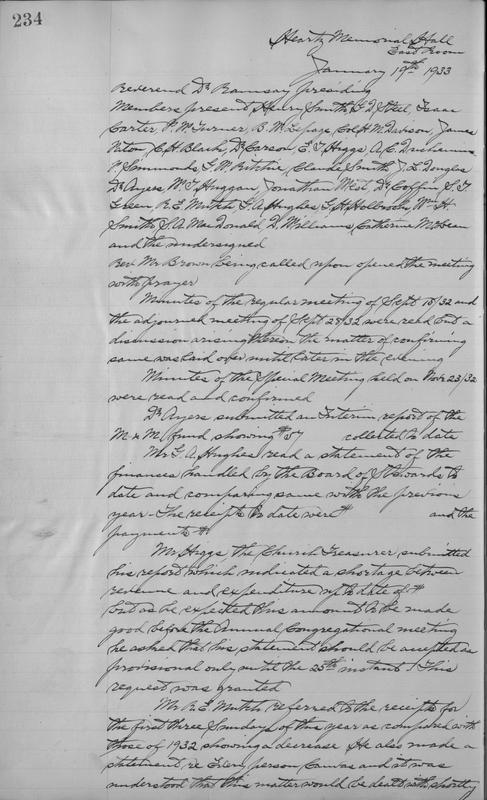 234
Heartz Memorial Hall
East Room
January 19th 1933
Reverend Dr Ramsay presiding
Members present Henry Smith, Isaac
Carter, P. W. Turner, B. W. Lepage, Col H M Davison, James
Paton, C. H. Black, Dr Carson, E. T. Higgs, A. C.
P. Simmonds, G. W. Ritchie, Claude Smith, J. L. Douglas
Dr Ayers, W. T. Huggan, Jonathan West, Dr Coffin, S. T.
Green, R. E. Mutch, G. A. Hughes, G. H. Holbrook, Wm H
Smith, S. A. MacDonald, D. Williams, Catherine McLean
and the undersigned
Rev Mr Brown being called upon opened the meeting
with prayer
Minutes of the regular meeting of Sept 15/32 and
the adjourned meeting of Sept 29/32 were read but a
discussion arising thereon the matter of confirming
same was laid over until later in the evening
Minutes of the Special Meeting held on Novr 23/32
were read and confirmed
Dr Ayers submitted an Interim report of the
M & M fund showing $ collected to date
Mr G. A. Hughes read a statement of the
finances handled by the Board of Stewards to
date and comparing same with the previous
year - The receipts to date were $ and the
payments $
Mr Higgs the Church Treasurer submitted
his report which indicated a shortage between
revenue and expenditure up to date of $
but as he expected this amount to be made
good before the Annual Congregational meeting
he asked that his statement should be accepted as
provisional only until the 25th instant. This
request was granted
Mr R. E. Mutch referred to the receipts for
the first three Sundays of this year as compared with
those of 1932 showing a decrease He also made a
statement re Every person Canvas and it was
understood that this matter would be dealt with shortly